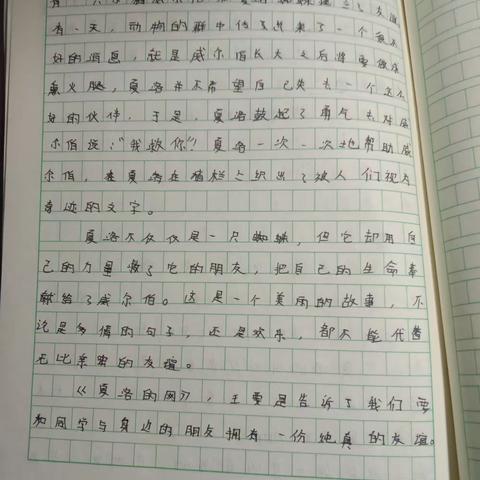 有一天,动物的群中传了出来了一个很不
好的消息,就是威尔伯长大之后将要做成
熏火腿,夏洛并不希望自己失去一个这么
好的伙伴,于是,夏洛鼓起了勇气去对威
尔伯说:“我救你”!夏洛一次一次地帮助威
尔伯,在夏洛在猪栏上织出了被人们视为
奇迹的文字。
夏洛不仅仅是一只蜘蛛,但它却用自
己的力量救了它的朋友,把自己的生命奉
献给了威尔伯。这是一个美丽的故事,不
论是多情的句子,还是欢乐,都不能代替
无比亲密的友谊。
《夏洛的网》,主要是告诉了我们要
和同学与身边的朋友拥有一份纯真的友谊。